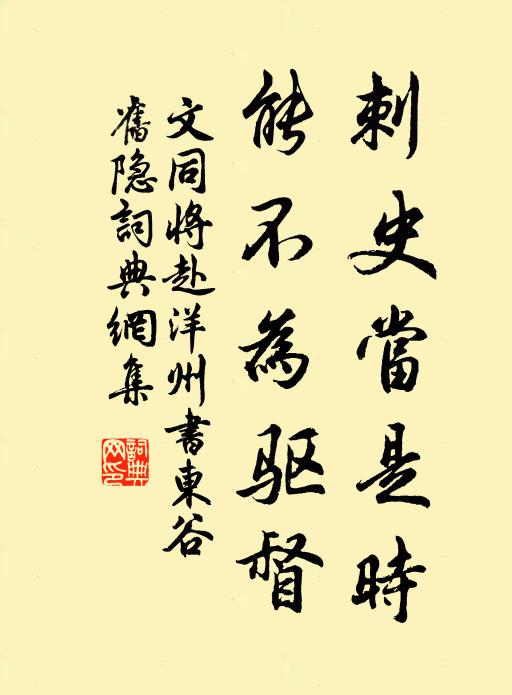 刺史當是時
能不為驱督
文同将赴洋州書東谷
舊隐詞典網集
詞典网印